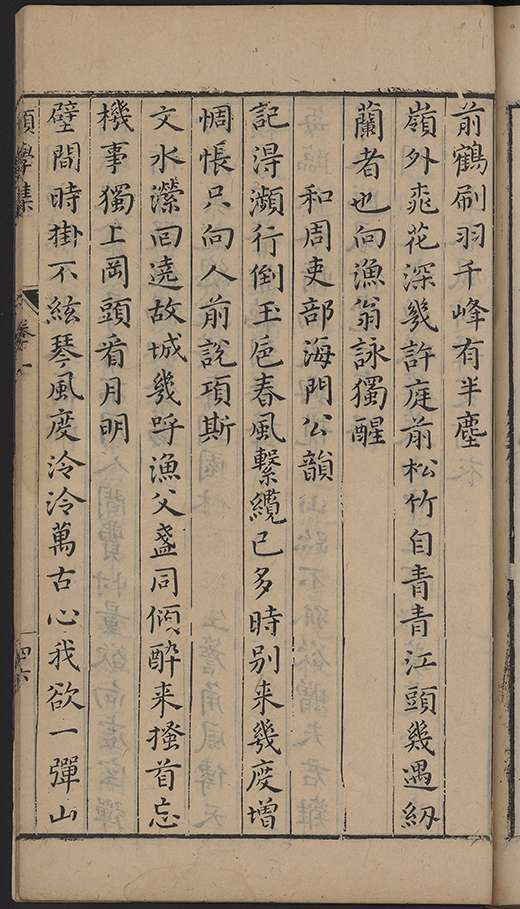 前鶴刷羽千峰有半塵
嶺外桃花深幾許庭前松竹自青青江頭幾遇紉
蘭者也向漁翁詠獨醒
和周吏部海門公韻
記得瀕行倒玉巵春風繫纜已多時別来幾度增
惆悵只向人前說項斯
文水瀠回遶故城幾呼漁父盞同傾酔来搔首忘
機事獨上岡頭看月明
壁間時掛不絃琴風度泠泠萬古心我欲一彈山
學集
卷一
四六